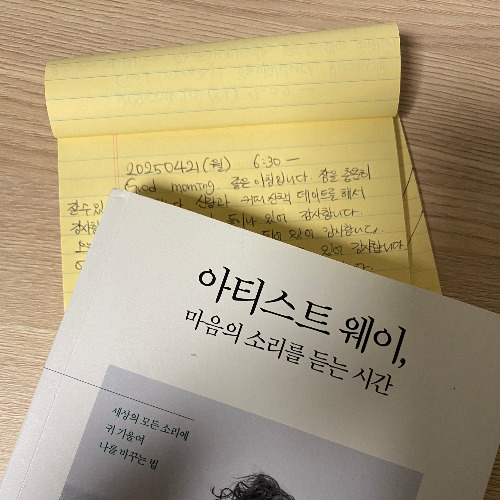 20250421(월) 6:30 —
Good morning 좋은 아침입니다. 잠을 충분히
잘 수 있 신랑과 커피 산책 데이트를 해서
감사합 있어 감사합니다.
있어 감사합니다.
있어 감사합니다
아티스트 웨이,
마음의 소리를 듣는 시간
세상의 모든 소리에
귀 기울여
나를 바꾸는 법